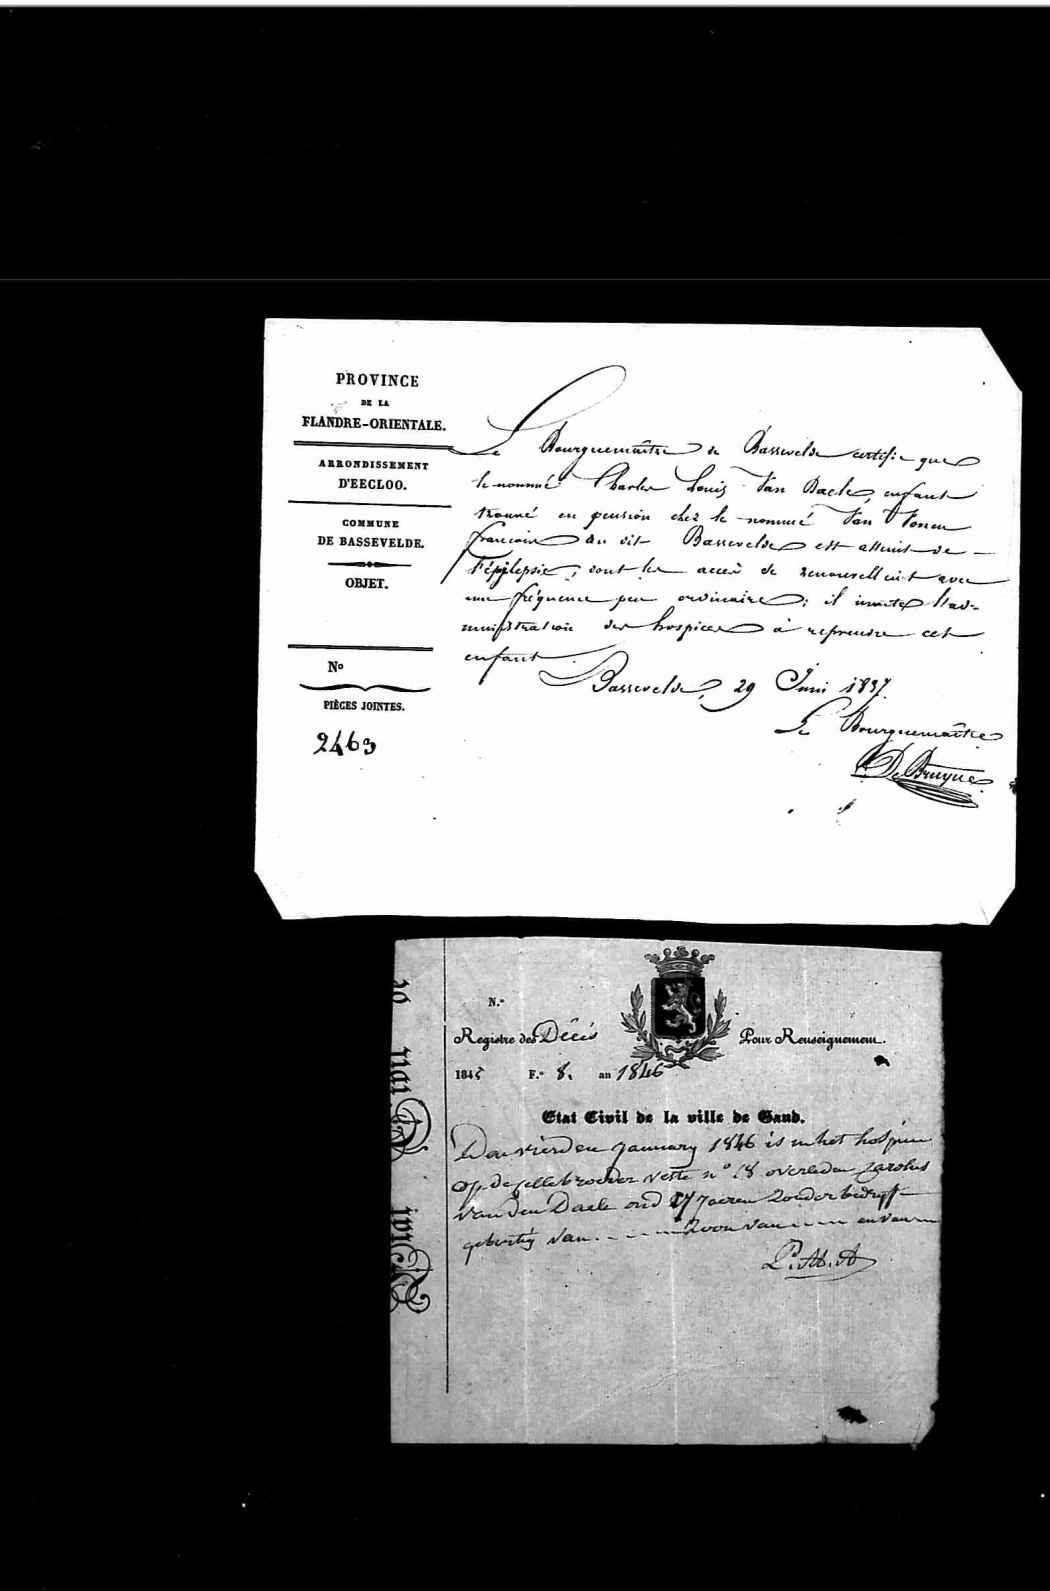 PROVINCE
DE LA
FLANDRE-ORIENTALE.
ARRONDISSEMENT
D'EECLOO.
COMMUNE
DE BASSEVELDE.
OBJET.
No
PIÈCES JOINTES.
2463
Le Bourguemaître de Bassevelde certifie que
le nommé Charles Louis Van Daele, enfant
trouvé en pension chez le nommé Van
francois du dit Bassevelde est atteint de
l'épilepsie, dont les accès de renouvellent avec
une fréquence peu ordinaire; il invite l'ad-
ministration des hospices à reprendre cet
enfant.
Bassevelde, 29 Juni 1837.
Le Bourguemaître
De Bruyne
N.o
Registre des Décès
Pour Renseignement.
1845 F.o 8. an 1846
Etat Civil de la ville de Gand.
Den vierden January 1846 is in het hospice
op de cellebroeder veste no 18 overleden Carolus
Van den Daele oud 17 jaeren zonder bedryf
geburtig van - - - - Zoon van - - - en van -